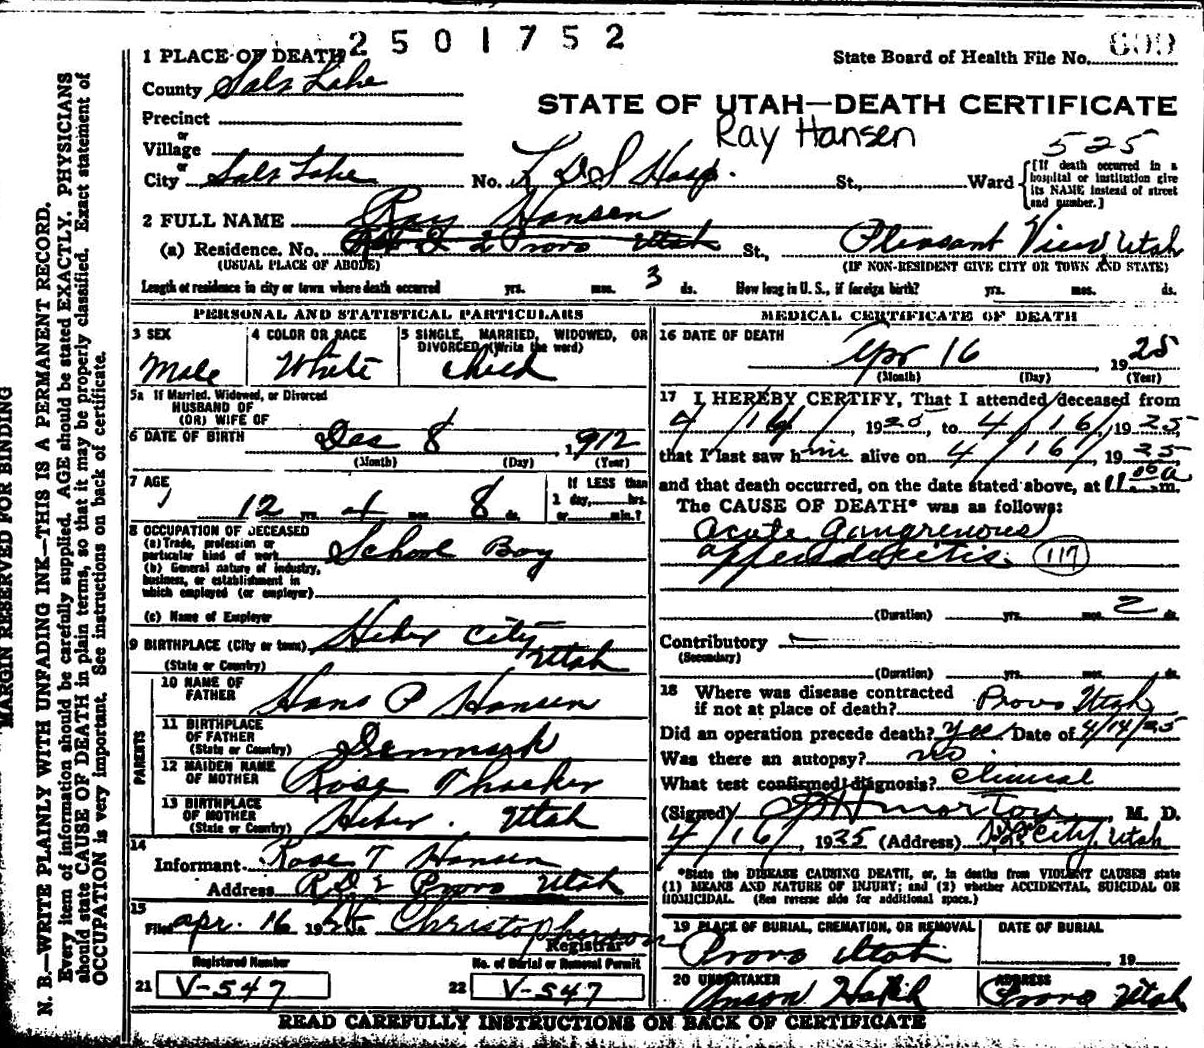 2501752
1 PLACE OF DEATH
State Board of Health File No. 699
County Salt Lake
STATE OF UTAH—DEATH CERTIFICATE
Ray Hansen
Precinct
or
Village
or
City Salt Lake No. L D S Hosp. St., Ward
525
{[If death occurred in a hospital or institution give its NAME instead of street and number.]
2 FULL NAME Ray Hansen
(a) Residence. No. 2 Provo Utah St., Pleasant View, Utah
(USUAL PLACE OF ABODE) (IF NON-RESIDENT GIVE CITY OR TOWN AND STATE)
Length of residence in city or town where death occurred yrs. mos. 3 ds. How long in U. S., if foreign birth? yrs. mos. ds.
PERSONAL AND STATISTICAL PARTICULARS
3 SEX
Male
4 COLOR OR RACE
White
5 SINGLE, MARRIED, WIDOWED, OR DIVORCED (Write the word)
Child
5a If Married, Widowed, or Divorced
HUSBAND OF
(OR) WIFE OF
6 DATE OF BIRTH Dec 8 1912
(Month) (Day) (Year)
7 AGE
12 yrs. 4 mos. 8 ds.
If LESS than
1 day, hrs.
or min.?
8 OCCUPATION OF DECEASED
(a) Trade, profession or
particular kind of work School Boy
(b) General nature of industry,
business, or establishment in
which employed (or employer)
(c) Name of Employer
9 BIRTHPLACE (City or town) Heber City
(State or Country) Utah
PARENTS
10 NAME OF
FATHER Hans P Hansen
11 BIRTHPLACE
OF FATHER
(State or Country) Denmark
12 MAIDEN NAME
OF MOTHER Rose Thacker
13 BIRTHPLACE
OF MOTHER
(State or Country) Heber. Utah
14
Informant Rose T Hansen
Address R.D. 2 Provo Utah
15
Filed Apr. 16 19 Christopherson
Registrar
Registered Number No. of Burial or Removal Permit
21 V-547 22 V-547
MEDICAL CERTIFICATE OF DEATH
16 DATE OF DEATH
Apr 16 1925
(Month) (Day) (Year)
17 I HEREBY CERTIFY, That I attended deceased from
4/14/, 1925, to 4/16/, 1925,
that I last saw him alive on 4/16/, 1925
and that death occurred, on the date stated above, at 11 00 a m.
The CAUSE OF DEATH* was as follows:
Acute gangrenous
appendicitis. 117
(Duration) yrs. mos. 2 ds.
Contributory
(Secondary)
(Duration) yrs. mos. ds.
18 Where was disease contracted
if not at place of death? Provo Utah
Did an operation precede death? Yes Date of 4/14/25
Was there an autopsy? no
What test confirmed diagnosis? Clinical
(Signed) Morton, M. D.
4/16/, 1925 (Address) City, Utah
*State the DISEASE CAUSING DEATH, or, in deaths from VIOLENT CAUSES state
(1) MEANS AND NATURE OF INJURY; and (2) whether ACCIDENTAL, SUICIDAL OR
HOMICIDAL. (See reverse side for additional space.)
19 PLACE OF BURIAL, CREMATION, OR REMOVAL
Provo Utah
DATE OF BURIAL
19
20 UNDERTAKER
Anson Hatch
ADDRESS
Provo Utah
READ CAREFULLY INSTRUCTIONS ON BACK OF CERTIFICATE
MARGIN RESERVED FOR BINDING
N. B.—WRITE PLAINLY WITH UNFADING INK—THIS IS A PERMANENT RECORD.
Every item of information should be carefully supplied. AGE should be stated EXACTLY. PHYSICIANS
should state CAUSE OF DEATH in plain terms, so that it may be properly classified. Exact statement of
OCCUPATION is very important. See instructions on back of certificate.